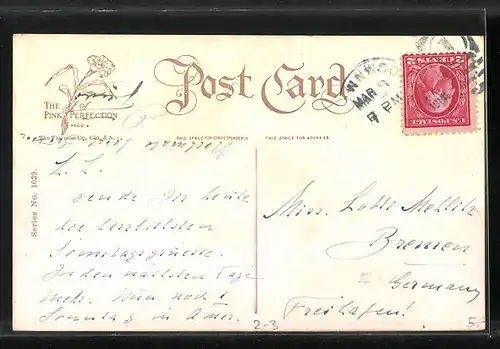 Post Card
THE PINK of PERFECTION
REGD.A.
THIS SPACE FOR CORRESPONDENCE
THIS SPACE FOR ADDRESS
Series No. 1029.
MAR
7 PM
U.S. POSTAGE
2 CENTS 2
L. L.
sende Dir heute
die herzlichsten
Sonntagsgrüsse.
In den nächsten Tage
mehr. Nun noch 1
Sonntag in Amer.
Miss. Lotti Mehlitz
Bremen
Germany
Freihafen!
2-3
5.